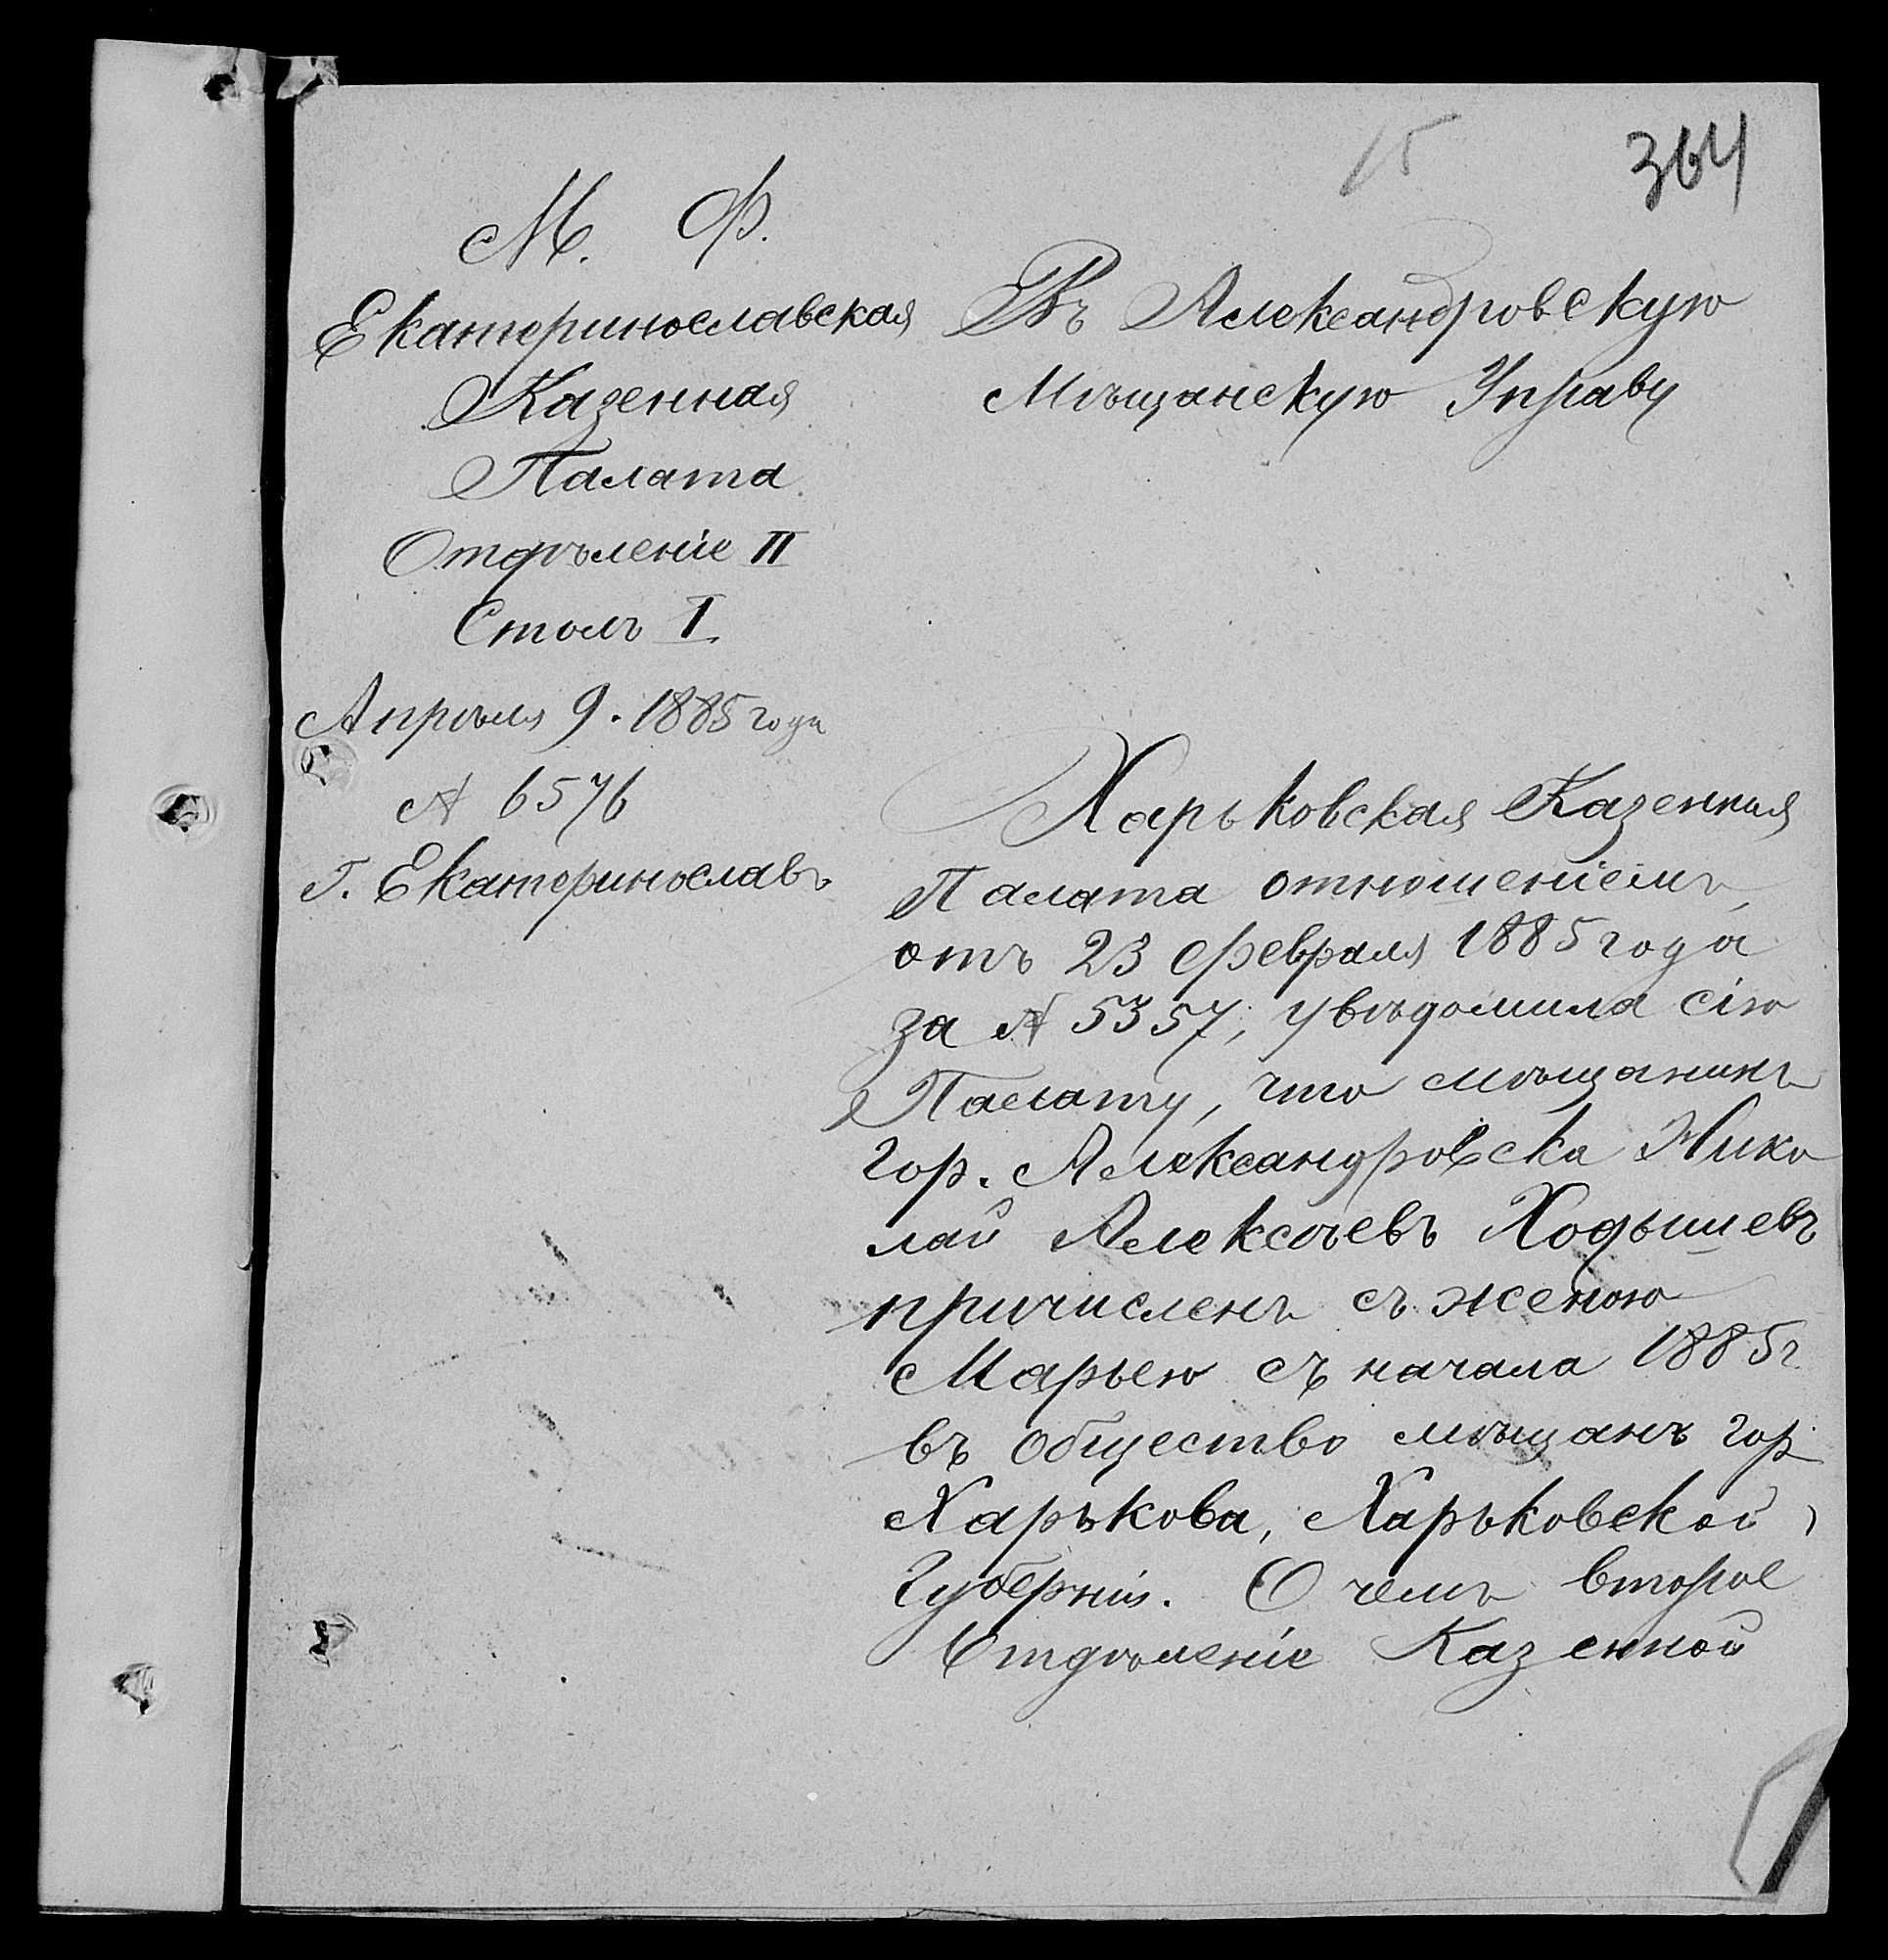 15
364
М. Ф.
Екатеринославская
Казенная
Палата
Отдѣленіе II
Столъ I
Апрѣля 9. 1885 года
№ 6576
Г. Екатеринославъ
Въ Александровскую
Мѣщанскую Управу
Харьковская Казенная
Палата отношеніемъ,
отъ 23 февраля 1885 года
за № 5357, увѣдомила сію
Палату, что мѣщанинъ
гор. Александровска Нико
лай Алексѣевъ Ходышевъ
причисленъ съ женою
Марьею съ начала 1885 г
въ общество мѣщанъ гор
Харькова, Харьковской
Губерніи. О чемъ второе
Отдѣленіе Казенной